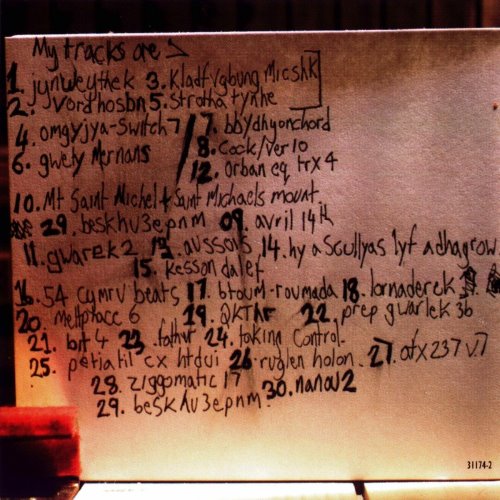 My tracks are >
1. jynweythek 3. Kladfvgbung Micshk
2. Jvordhosbn 5. strotha tynhe
4. omgyjya-switch 7 / 7. bbydhyonchord
6. gwety mernans 8. Cock/ver 10
12. orban eq trx 4
10. Mt Saint Michel + Saint Michaels mount.
29. beskhu3epnm 09. avril 14th
11. gwarek 2 13. aussois 14. hy a Scullyas lyf adhagrow.
15. kesson dalef
16. 54 cymru beats 17. btoum-roumada 18. lornaderek
20. meltphace 6 19. QKThr 22. prep gwarlek 3b
21. bit 4 23. father 24. taking control.
25. petiatil cx htdui 26. ruglen holon. 27. afx 237 v.7
28. ziggomatic 17 30. nanou 2
29. beskhu3epnm.
31174-2